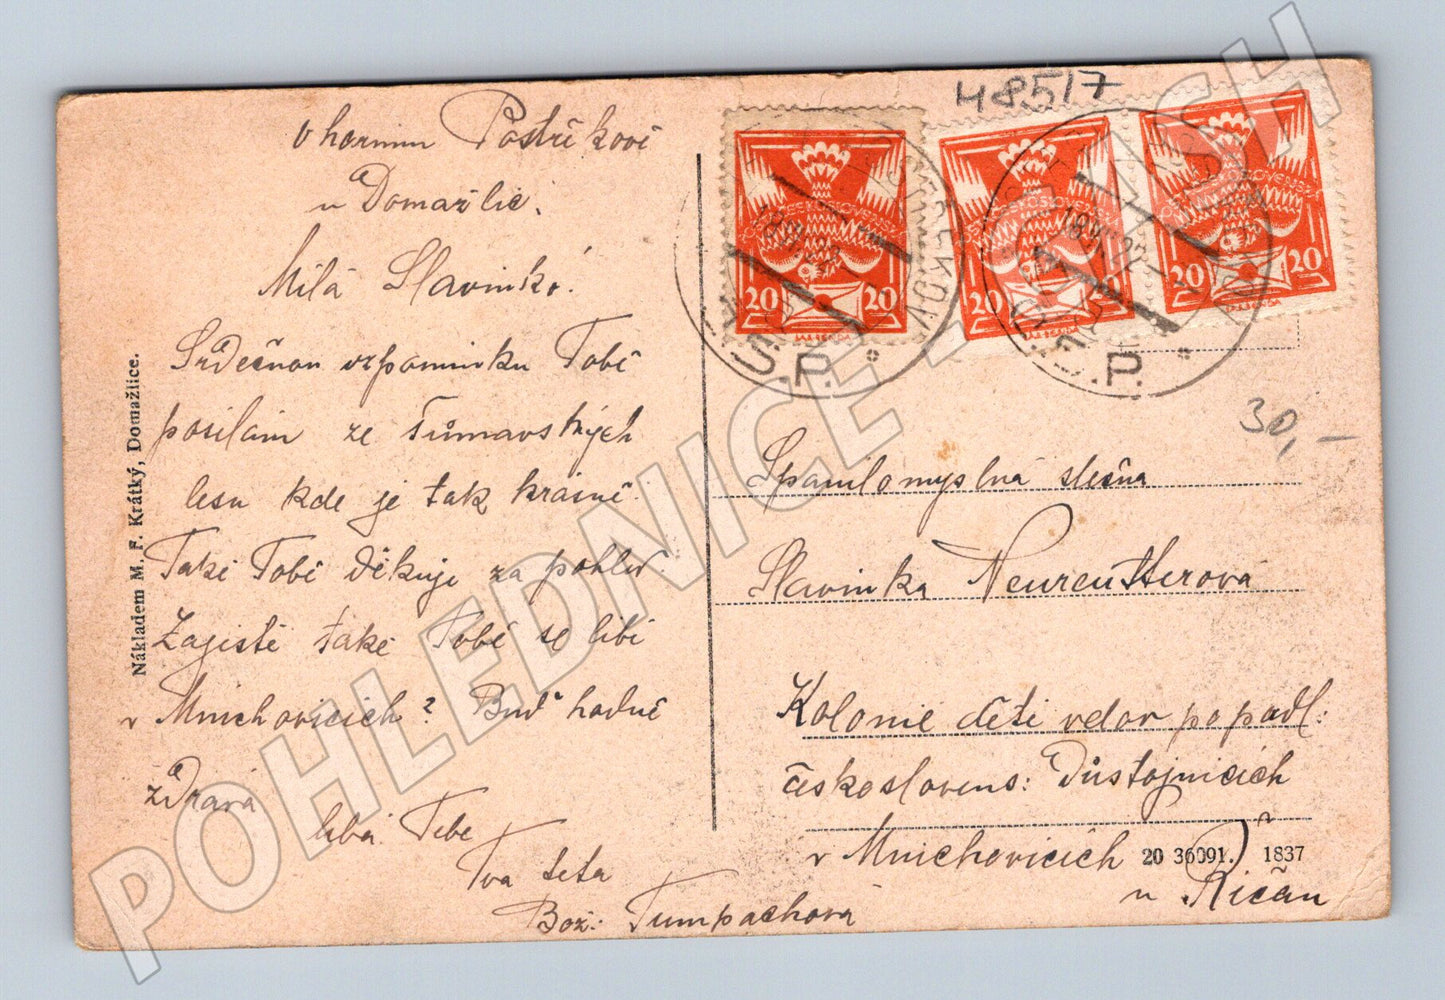 48517
v horním Postřekově
u Domažlic.
Milá Slavinko!
Srdečnou vzpomínku Tobě
posílám ze šumavských
lesů kde je tak krásně.
Také Tobě děkuji za pohled.
Zajisté také Tobě se líbí
v Mnichovicích? Buď hodně
zdráva
líbá Tebe
Tva teta
Bož: Tumpachová
Nákladem M. F. Krátký, Domažlice.
20 20
20 20
20 20
18 VII 22
18 VII 22
Č.S.P.
Č.S.P.
30,-
Spanilomyslná slečna
Slavinka Neureutterová
Kolonie dětí vdov po padl:
českoslovens: Důstojnících
v Mnichovicích
u Říčan
20 36091. 1837
POHLEDNICE